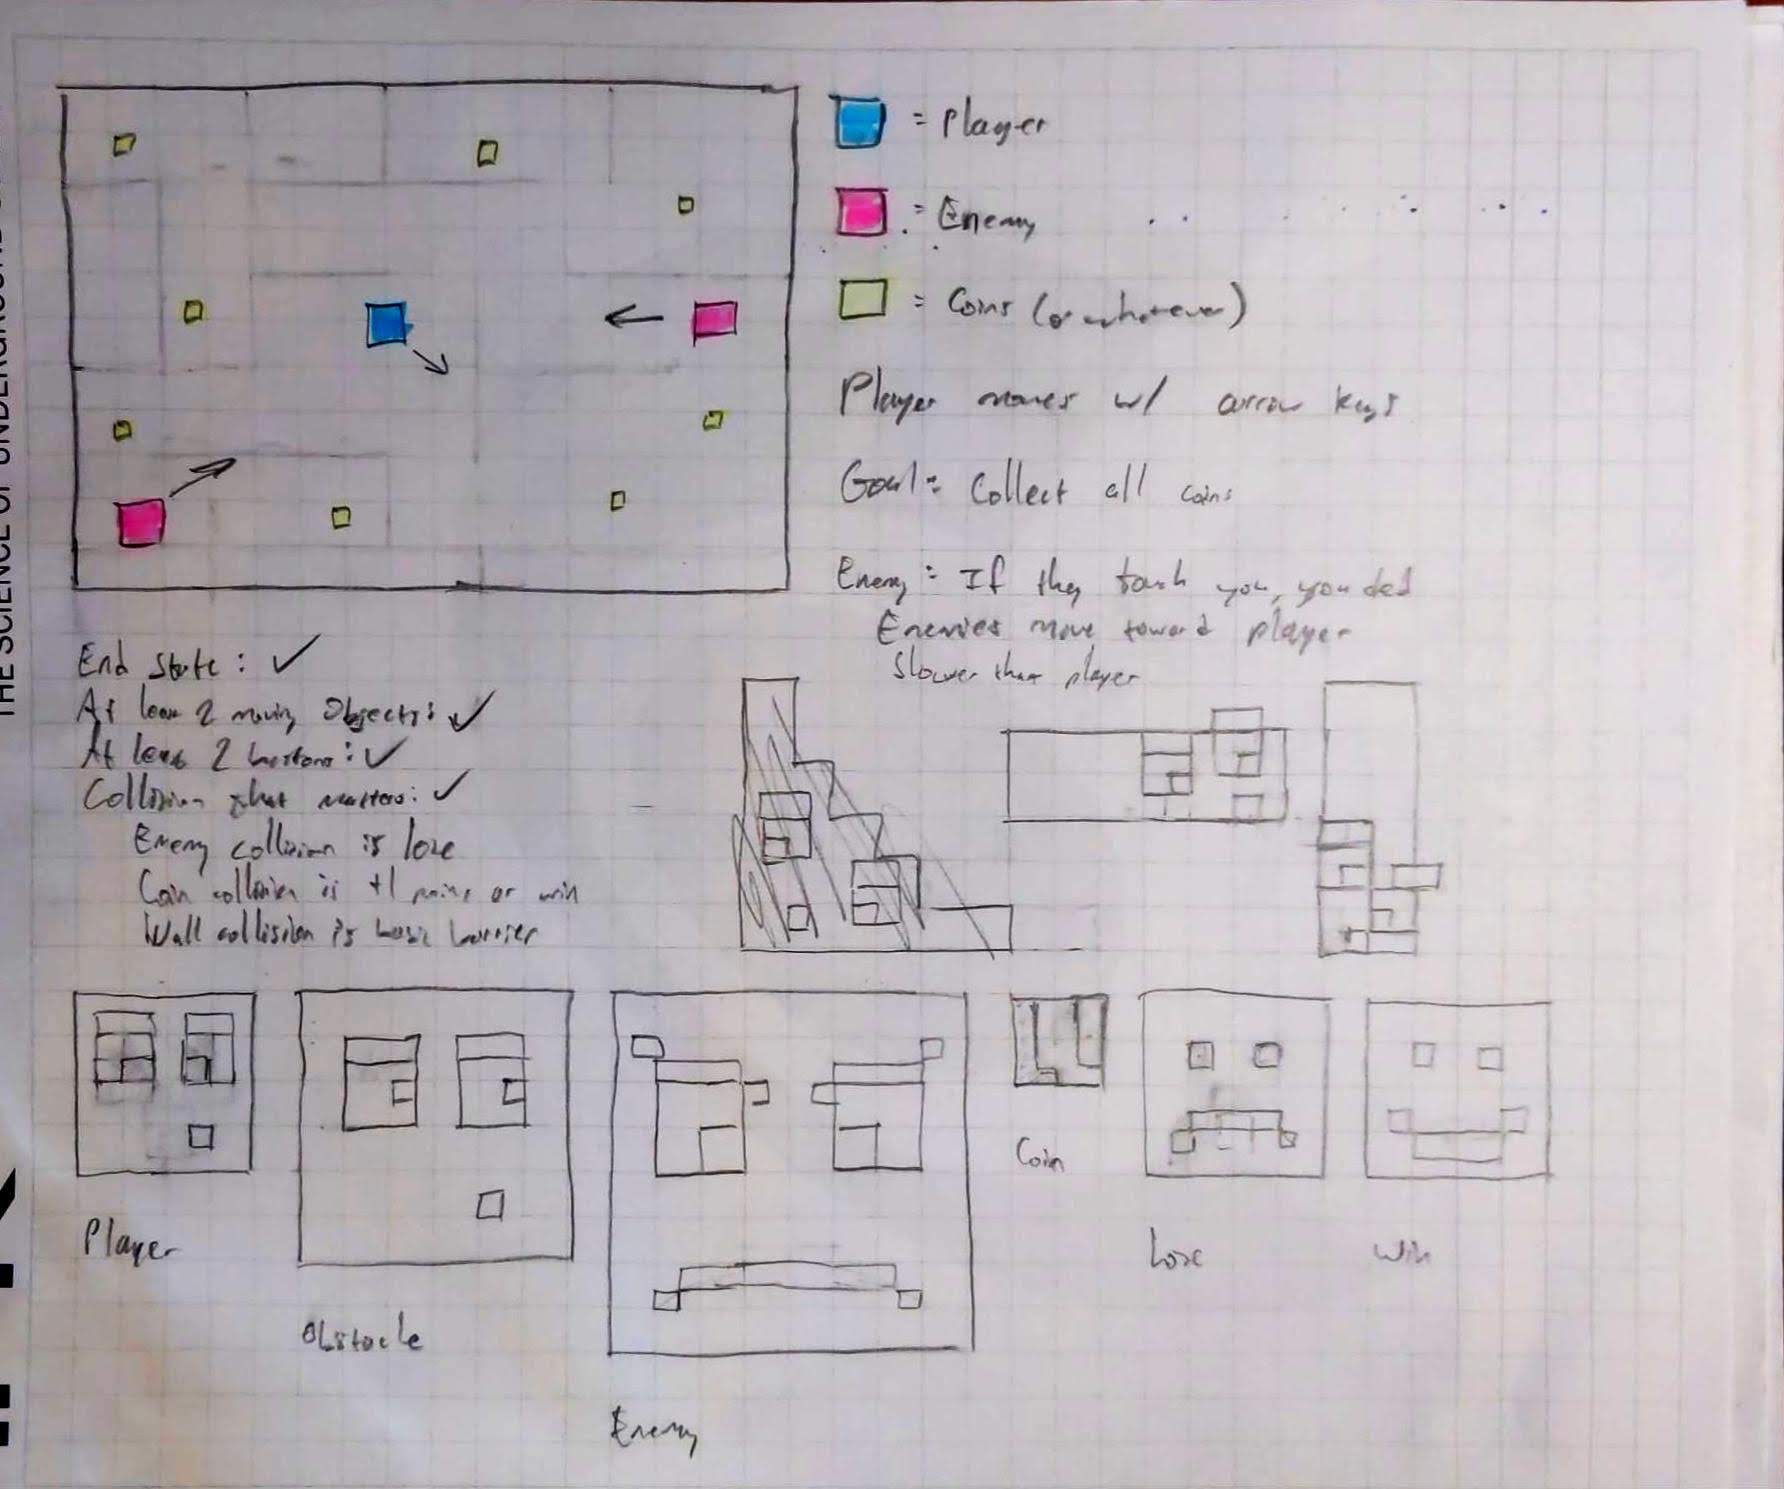 THE SCIENCE OF UNDERGROUND
= Player
= Enemy
= Coins (or whatever)
Player moves w/ arrow keys
Goal: Collect all coins
Enemy: If they touch you, you ded
Enemies move toward player
Slower than player
End State: ✓
At least 2 moving Objects: ✓
At least 2 buttons: ✓
Collision that matters: ✓
Enemy collision is lose
Coin collision is +1 point or win
Wall collision is basic barrier
Player
Obstacle
Enemy
Coin
Lose
Win